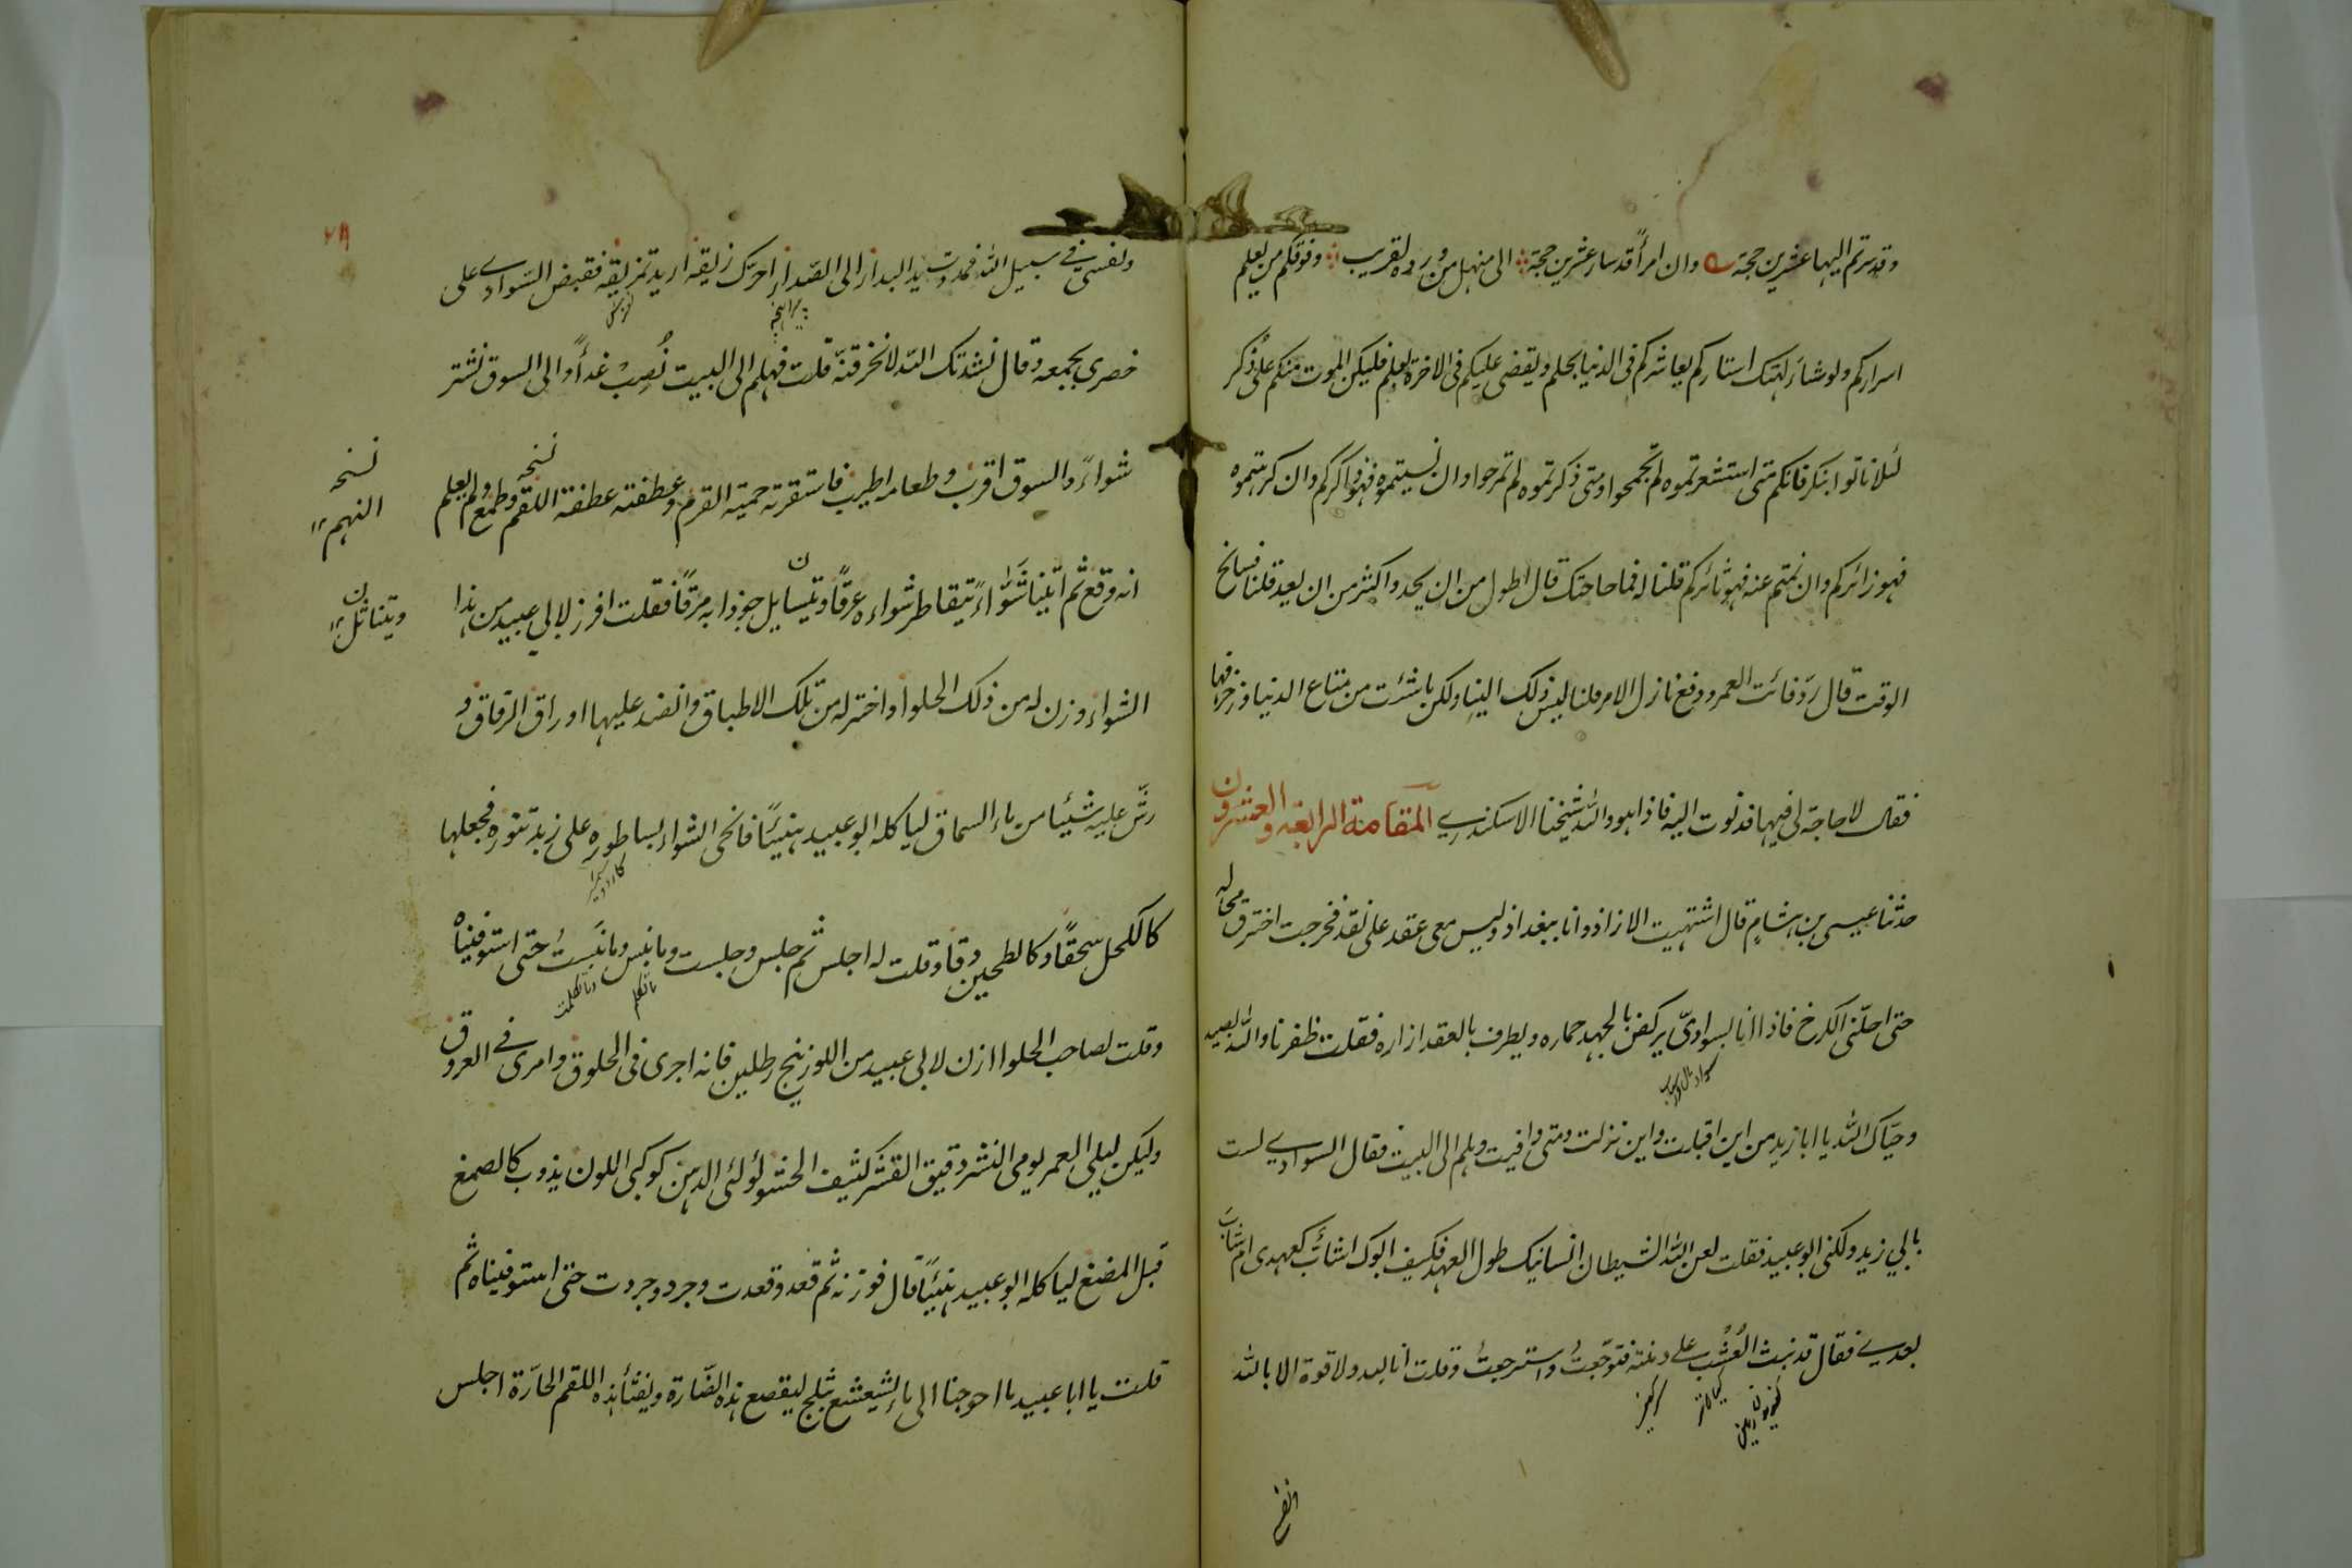 وقد سرتم اليها عشرين حجة وان امرأً قد سار عشرين حجة الى منهل من ورده لقريب وفوقكم من يعلم
اسراركم ولو شاء لهتك استاركم يعاشركم فى الدنيا بحلم ويقضى عليكم فى الاخرة بعلم فليكن الموت منكم على ذكر
لئلا تاتوا بنكر فانكم متى استشعرتموه لم تجمحوا ومتى ذكرتموه لم تمرحوا وان نسيتموه فهو ذاكركم وان كرهتموه
فهو زائركم وان نمتم عنه فهو ثائركم قلنا له فما حاجتك قال اطول من ان يحد واكثر من ان يعد قلنا فسانح
الوقت قال رد فائت العمر ودفع نازل الامر قلنا ليس ذلك الينا ولكن ما شئت من متاع الدنيا وزخرفها
فقال لا حاجة لى فيها فدنوت اليه فاذا هو والله شيخنا الاسكندري المقامة الرابعة والعشرون
حدثنا عيسى بن هشام قال اشتهيت الازاذ وانا ببغداذ وليس معى عقد على نقد فخرجت اخترق محاله
حتى احلنى الكرخ فاذا انا بسوادى يركض بالجهد حماره ويطرف بالعقد ازاره فقلت ظفرنا والله بصيد
وحيّاك الله يا ابا زيد من اين اقبلت واين نزلت ومتى وافيت وهلم الى البيت فقال السوادي لست
بابي زيد ولكنى ابو عبيد فقلت لعن الله الشيطان انسانيك طول العهد فكيف ابوك اشابّ كعهدى ام شاب
بعدي فقال قد نبت العُشْب على دمنته فتوجّعتُ واسترجعتُ وقلت انا لله ولا قوة الا بالله
ونفسى في سبيل الله فمددت يد البدار الى الصدار احرك زيقه اريد تمزيقه فقبض السوادي على
خصرى بجمعه وقال نشدتك الله لا تخرقنّه قلت فهلم الى البيت نُصِبْ غداءً او الى السوق نشتر
شواءً والسوق اقرب وطعامه اطيب فاستفزته حمية القرم وعطفته عطفة اللقم وطمع ولم يعلم
نسخه
النهم
انه وقع ثم اتينا شَوَّاءً يتقاطر شواءه عرقًا وتتسايل جوذابه مرقًا فقلت افرز لابي عبيد من هذا
وتتناثل
الشواء وزن له من ذلك الحلوا واختر له من تلك الاطباق وانضد عليها اوراق الرقاق و
رشّ عليه شيئا من ماء السماق لياكله ابو عبيد هنيئا فانحى الشواء بساطوره على زبد تنوره فجعلها
كالكحل سحقًا وكالطحين دقا وقلت له اجلس ثم جلس وجلست وما نبس وما نبستُ حتى استوفيناه
ما تكلم وما تكلمت
وقلت لصاحب الحلوا ازن لابى عبيد من اللوزينج رطلين فانه اجرى فى الحلوق وامرى في العروق
وليكن ليلي العمر يومى النشر دقيق القشر كثيف الحشو لؤلئى الدهن كوكبى اللون يذوب كالصمغ
قبل المضغ لياكله ابو عبيد هنيئًا قال فوزنه ثم قعد وقعدت وجرد وجردت حتى استوفيناه ثم
قلت يا ابا عبيد ما احوجنا الى ماء يشعشع بثلج ليقصع هذه الصّارة ويفثأ هذه اللقم الحارّة اجلس